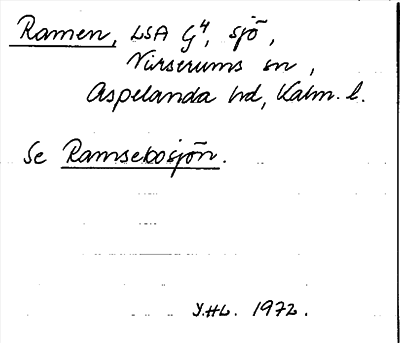 Ramen, LSA G4, sjö,
Virserums sn,
Aspelanda hd, Kalm. l.
Se Ramsebosjön.
Y.HL. 1972.